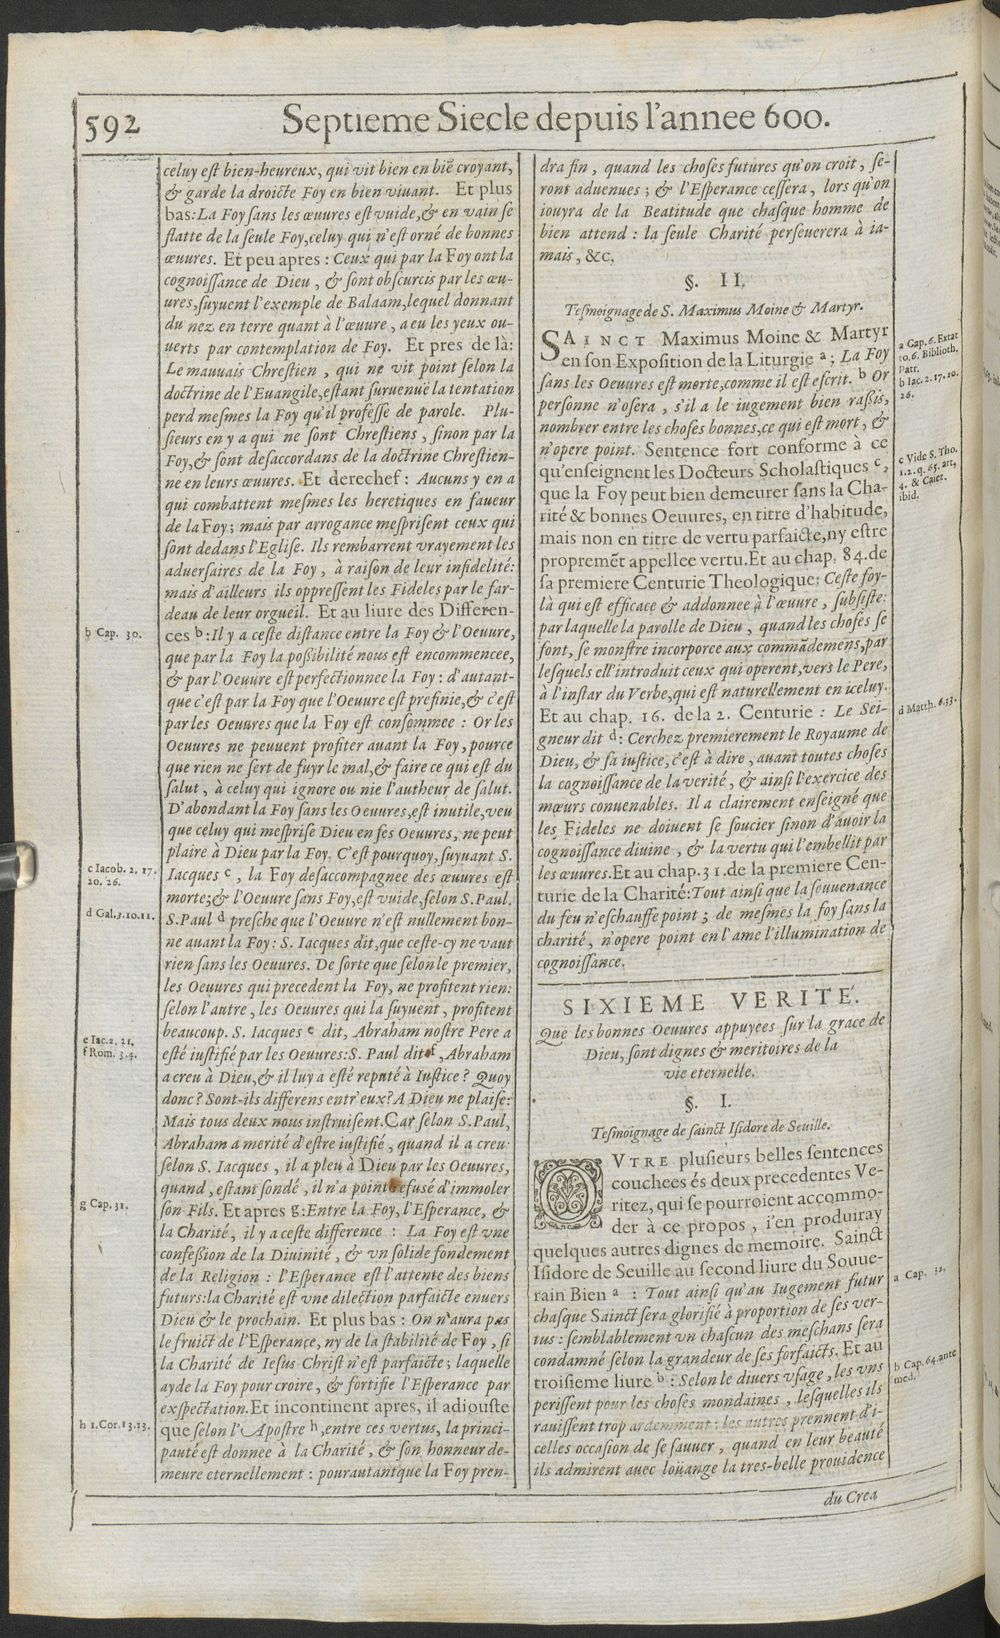 592
Septieme Siecle depuis l'annee 600.
celuy est bien-heureux, qui vit bien en biẽ croyant,
& garde la droicte Foy en bien viuant. Et plus
bas: La Foy sans les œuures est vuide, & en vain se
flatte de la seule Foy, celuy qui n'est orné de bonnes
œuures. Et peu apres : Ceux qui par la Foy ont la
cognoissance de Dieu , & sont obscurcis par les œu-
ures, suyuent l'exemple de Balaam, lequel donnant
du nez en terre quant à l'œuure , a eu les yeux ou-
uerts par contemplation de Foy. Et pres de là:
Le mauuais Chrestien , qui ne vit point selon la
doctrine de l'Euangile, estant suruenuë la tentation
perd mesmes la Foy qu'il professe de parole. Plu-
sieurs en y a qui ne sont Chrestiens , sinon par la
Foy, & sont desaccordans de la doctrine Chrestien-
ne en leurs œuures. Et derechef : Aucuns y en a
qui combattent mesmes les heretiques en faueur
de la Foy; mais par arrogance mesprisent ceux qui
sont dedans l'Eglise. Ils rembarrent vrayement les
aduersaires de la Foy , à raison de leur infidelité:
mais d'ailleurs ils oppressent les Fideles par le far-
deau de leur orgueil. Et au liure des Differen-
ces b : Il y a ceste distance entre la Foy & l'Oeuure,
que par la Foy la possibilité nous est encommencee,
& par l'Oeuure est perfectionnee la Foy : d'autant-
que c'est par la Foy que l'Oeuure est prefinie, & c'est
par les Oeuures que la Foy est consommee : Or les
Oeuures ne peuuent profiter auant la Foy , pource
que rien ne sert de fuyr le mal, & faire ce qui est du
salut , à celuy qui ignore ou nie l'autheur de salut.
D'abondant la Foy sans les Oeuures, est inutile, veu
que celuy qui mesprise Dieu en ses Oeuures, ne peut
plaire à Dieu par la Foy. C'est pourquoy, suyuant S.
Iacques c , la Foy desaccompagnee des œuures est
morte; & l'Oeuure sans Foy, est vuide, selon S. Paul.
S. Paul d presche que l'Oeuure n'est nullement bon-
ne auant la Foy : S. Iacques dit, que ceste-cy ne vaut
rien sans les Oeuures. De sorte que selon le premier,
les Oeuures qui precedent la Foy, ne profitent rien:
selon l'autre , les Oeuures qui la suyuent , profitent
beaucoup. S. Iacques e dit , Abraham nostre Pere a
esté iustifié par les Oeuures: S. Paul dit f , Abraham
a creu à Dieu, & il luy a esté reputé à Iustice ? Quoy
donc ? Sont-ils differens entr'eux? A Dieu ne plaise:
Mais tous deux nous instruisent. Car selon S. Paul,
Abraham a merité d'estre iustifié , quand il a creu:
selon S. Iacques , il a pleu à Dieu par les Oeuures,
quand , estant sondé , il n'a point refusé d'immoler
son Fils. Et apres g : Entre la Foy, l'Esperance, &
la Charité, il y a ceste difference : La Foy est vne
confession de la Diuinité , & vn solide fondement
de la Religion : l'Esperance est l'attente des biens
futurs: la Charité est vne dilection parfaicte enuers
Dieu & le prochain. Et plus bas : On n'aura pas
le fruict de l'Esperance, ny de la stabilité de Foy , si
la Charité de Iesus Christ n'est parfaicte ; laquelle
ayde la Foy pour croire , & fortifie l'Esperance par
exspectation. Et incontinent apres, il adiouste
que selon l'Apostre h , entre ces vertus, la princi-
pauté est donnee à la Charité , & son honneur de-
meure eternellement : pourautantque la Foy pren-
b Cap. 30.
c Iacob. 2. 17.
20. 26.
d Gal. 3. 10. 11.
e Iac. 2. 21.
f Rom. 3. 4.
g Cap. 31.
h 1. Cor. 13. 13.
dra fin , quand les choses futures qu'on croit , se-
ront aduenues ; & l'Esperance cessera , lors qu'on
iouyra de la Beatitude que chasque homme de
bien attend : la seule Charité perseuerera à ia-
mais , &c.
§. II.
Tesmoignage de S. Maximus Moine & Martyr.
SAINCT Maximus Moine & Martyr
en son Exposition de la Liturgie a : La Foy
sans les Oeuures est morte, comme il est escrit. b Or
personne n'osera , s'il a le iugement bien rassis,
nombrer entre les choses bonnes, ce qui est mort , &
n'opere point. Sentence fort conforme à ce
qu'enseignent les Docteurs Scholastiques c ,
que la Foy peut bien demeurer sans la Cha-
rité & bonnes Oeuures, en titre d'habitude,
mais non en titre de vertu parfaicte, ny estre
propremẽt appellee vertu. Et au chap. 84. de
sa premiere Centurie Theologique: Ceste foy-
là qui est efficace & addonnee à l'œuure , subsiste:
par laquelle la parolle de Dieu , quand les choses se
font, se monstre incorporee aux commãdemens, par
lesquels ell'introduit ceux qui operent, vers le Pere,
à l'instar du Verbe, qui est naturellement en iceluy.
Et au chap. 16. de la 2. Centurie : Le Sei-
gneur dit d : Cerchez premierement le Royaume de
Dieu, & sa iustice, c'est à dire , auant toutes choses
la cognoissance de la verité , & ainsi l'exercice des
mœurs conuenables. Il a clairement enseigné que
les Fideles ne doiuent se soucier sinon d'auoir la
cognoissance diuine , & la vertu qui l'embellit par
les œuures. Et au chap. 31. de la premiere Cen-
turie de la Charité: Tout ainsi que la souuenance
du feu n'eschauffe point ; de mesmes la foy sans la
charité , n'opere point en l'ame l'illumination de
cognoissance.
SIXIEME VERITE'.
Que les bonnes Oeuures appuyees sur la grace de
Dieu, sont dignes & meritoires de la
vie eternelle.
§. I.
Tesmoignage de sainct Isidore de Seuille.
OVTRE plusieurs belles sentences
couchees és deux precedentes Ve-
ritez, qui se pourroient accommo-
der à ce propos , i'en produiray
quelques autres dignes de memoire. Sainct
Isidore de Seuille au second liure du Souue-
rain Bien a : Tout ainsi qu'au Iugement futur
chasque Sainct sera glorifié à proportion de ses ver-
tus : semblablement vn chascun des meschans sera
condamné selon la grandeur de ses forfaicts. Et au
troisieme liure b : Selon le diuers vsage , les vns
perissent pour les choses mondaines , lesquelles ils
rauissent trop ardemment : les autres prennent d'i-
celles occasion de se sauuer , quand en leur beauté
ils admirent auec loüange la tres-belle prouidence
du Crea
a Cap. 6. Extat
to. 6. Biblioth.
Patr.
b Iac. 2. 17. 20.
26.
c Vide S. Tho.
1. 2. q. 65. art.
4. & Caiet.
ibid.
d Matth. 6. 33.
a Cap. 32.
b Cap. 64. ante
med.